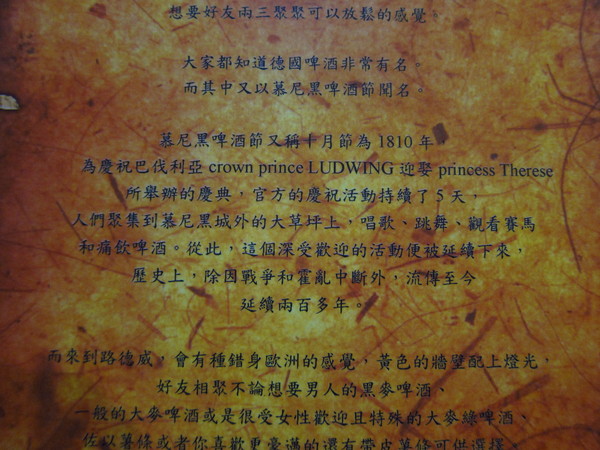 想要好友兩三聚聚可以放鬆的感覺。
大家都知道德國啤酒非常有名。
而其中又以慕尼黑啤酒節聞名。
慕尼黑啤酒節又稱十月節為 1810 年，
為慶祝巴伐利亞 crown prince LUDWING 迎娶 princess Therese
所舉辦的慶典，官方的慶祝活動持續了 5 天，
人們聚集到慕尼黑城外的大草坪上，唱歌、跳舞、觀看賽馬
和痛飲啤酒。從此，這個深受歡迎的活動便被延續下來，
歷史上，除因戰爭和霍亂中斷外，流傳至今
延續兩百多年。
而來到路德威，會有種錯身歐洲的感覺，黃色的牆壁配上燈光，
好友相聚不論想要男人的黑麥啤酒、
一般的大麥啤酒或是很受女性歡迎且特殊的大麥綠啤酒、
佐以薯條或者你喜歡更豪邁的還有帶皮薯條可供選擇。